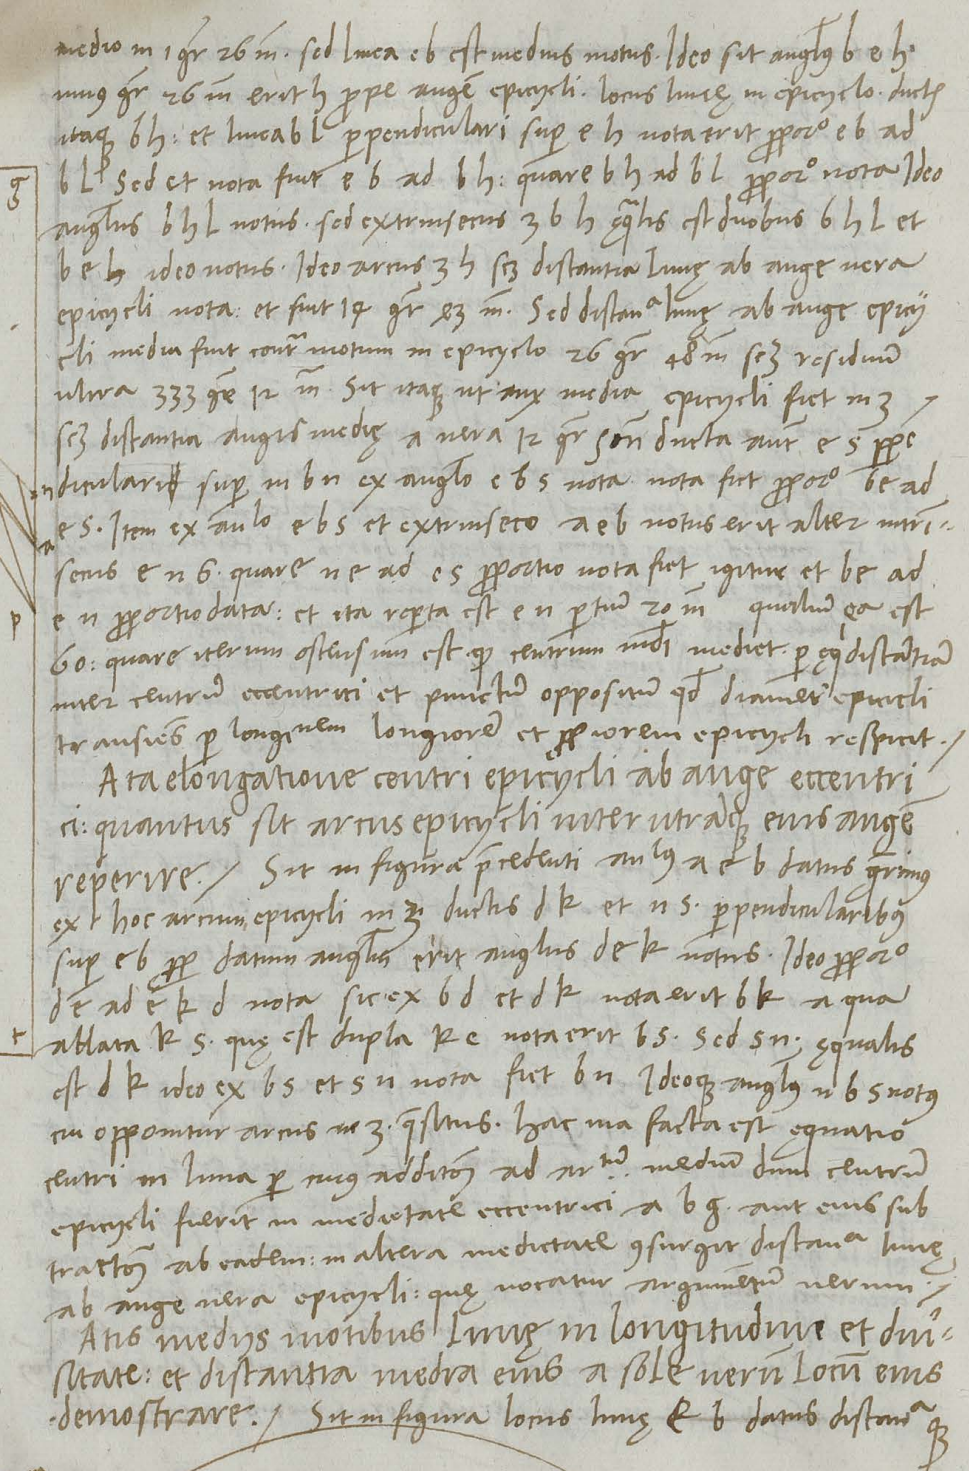 medio in 1 gr̄ 26 m̄. sed linea e b est medius motus. Ideo sit angl'us b e h
unius gr̄ 26 m̄ erit h prope augem epicycli. locus lunę in epicyclo. ductis
itaque b h: et linea b l perpendiculari super e h nota erit proporº e b ad
b l. Sed et nota fuit e b ad b h: quare b h ad b l proporº nota Ideo
angl'us b h l notus. sed extrinsecus z b h ęqualis est duobus b h l et
b e h ideo notus. Ideo arcus z h scz distantia Lunę ab auge vera
epicycli nota: et fuit 14 gr̄ m̄. Sed distanª lunę ab auge epicy
cli media fuit contra motum in epicyclo 26 gr̄ 48 m̄ scz residuum
ultra 333 gr̄ 12 m̄. Sit itaque ut aux media epicycli fiet in z
scz distantia augis medię a vera 12 gr̄ ducta autem e s perpē
diculari super m b n ex anglo e b s nota nota fiet proporº be ad
e s. Item ex anlo e b s et extrinseco a e b notus erit alter intrin-
secus e n b. quare n e ad e s proportio nota fiet igitur et be ad
e n proportio data: et ita reperta est e n partium 20 m̄ qualium ea est
60: quare iterum ostensum est quod centrum mūdi mediet per ęqdistantiam
inter centrum eccentrici et punctum oppositum qd diametr epicicli
transiens per longinem longiorem et propiorem epicycli respicit. /
Ata elongatione centri epicycli ab auge eccentri
ci: quantus sit arcus epicycli inter utramque eius augem
reperire. / Sit in figura precedenti anlus a e b datus querimus
ex hoc arcum epicycli m z ductis d k et n s. perpendicularibus
super e b propter datum angl'um erit anglus d e k notus. Ideo proporº
d e ad e k d nota sic ex b d et d k nota erit b k a qua
ablata k s. quę est dupla k e nota erit b s. sed s n. ęqualis
est d k ideo ex b s et s n nota fiet b n Ideoque angl'us n b s notus
cui opponitur arcus m z. quęsitus. hac via facta est ęquatio
centri in luna per cuius additionem ad artum. medium dum centrum
epicycli fuerit in medietate eccentrici a b g. aut eius sub
tractionem ab eadem: in altera medietate consurgit distanª lunę
ab auge vera epicycli: quę vocatur argumentum verum. /
Atis medijs motibus Lunę in longitudine et diu̅-
sitate: et distantia media eius a sole verum locum eius
demostrare. / Sit in figura locus lunę b datus distanª que
g
n
a
p
t